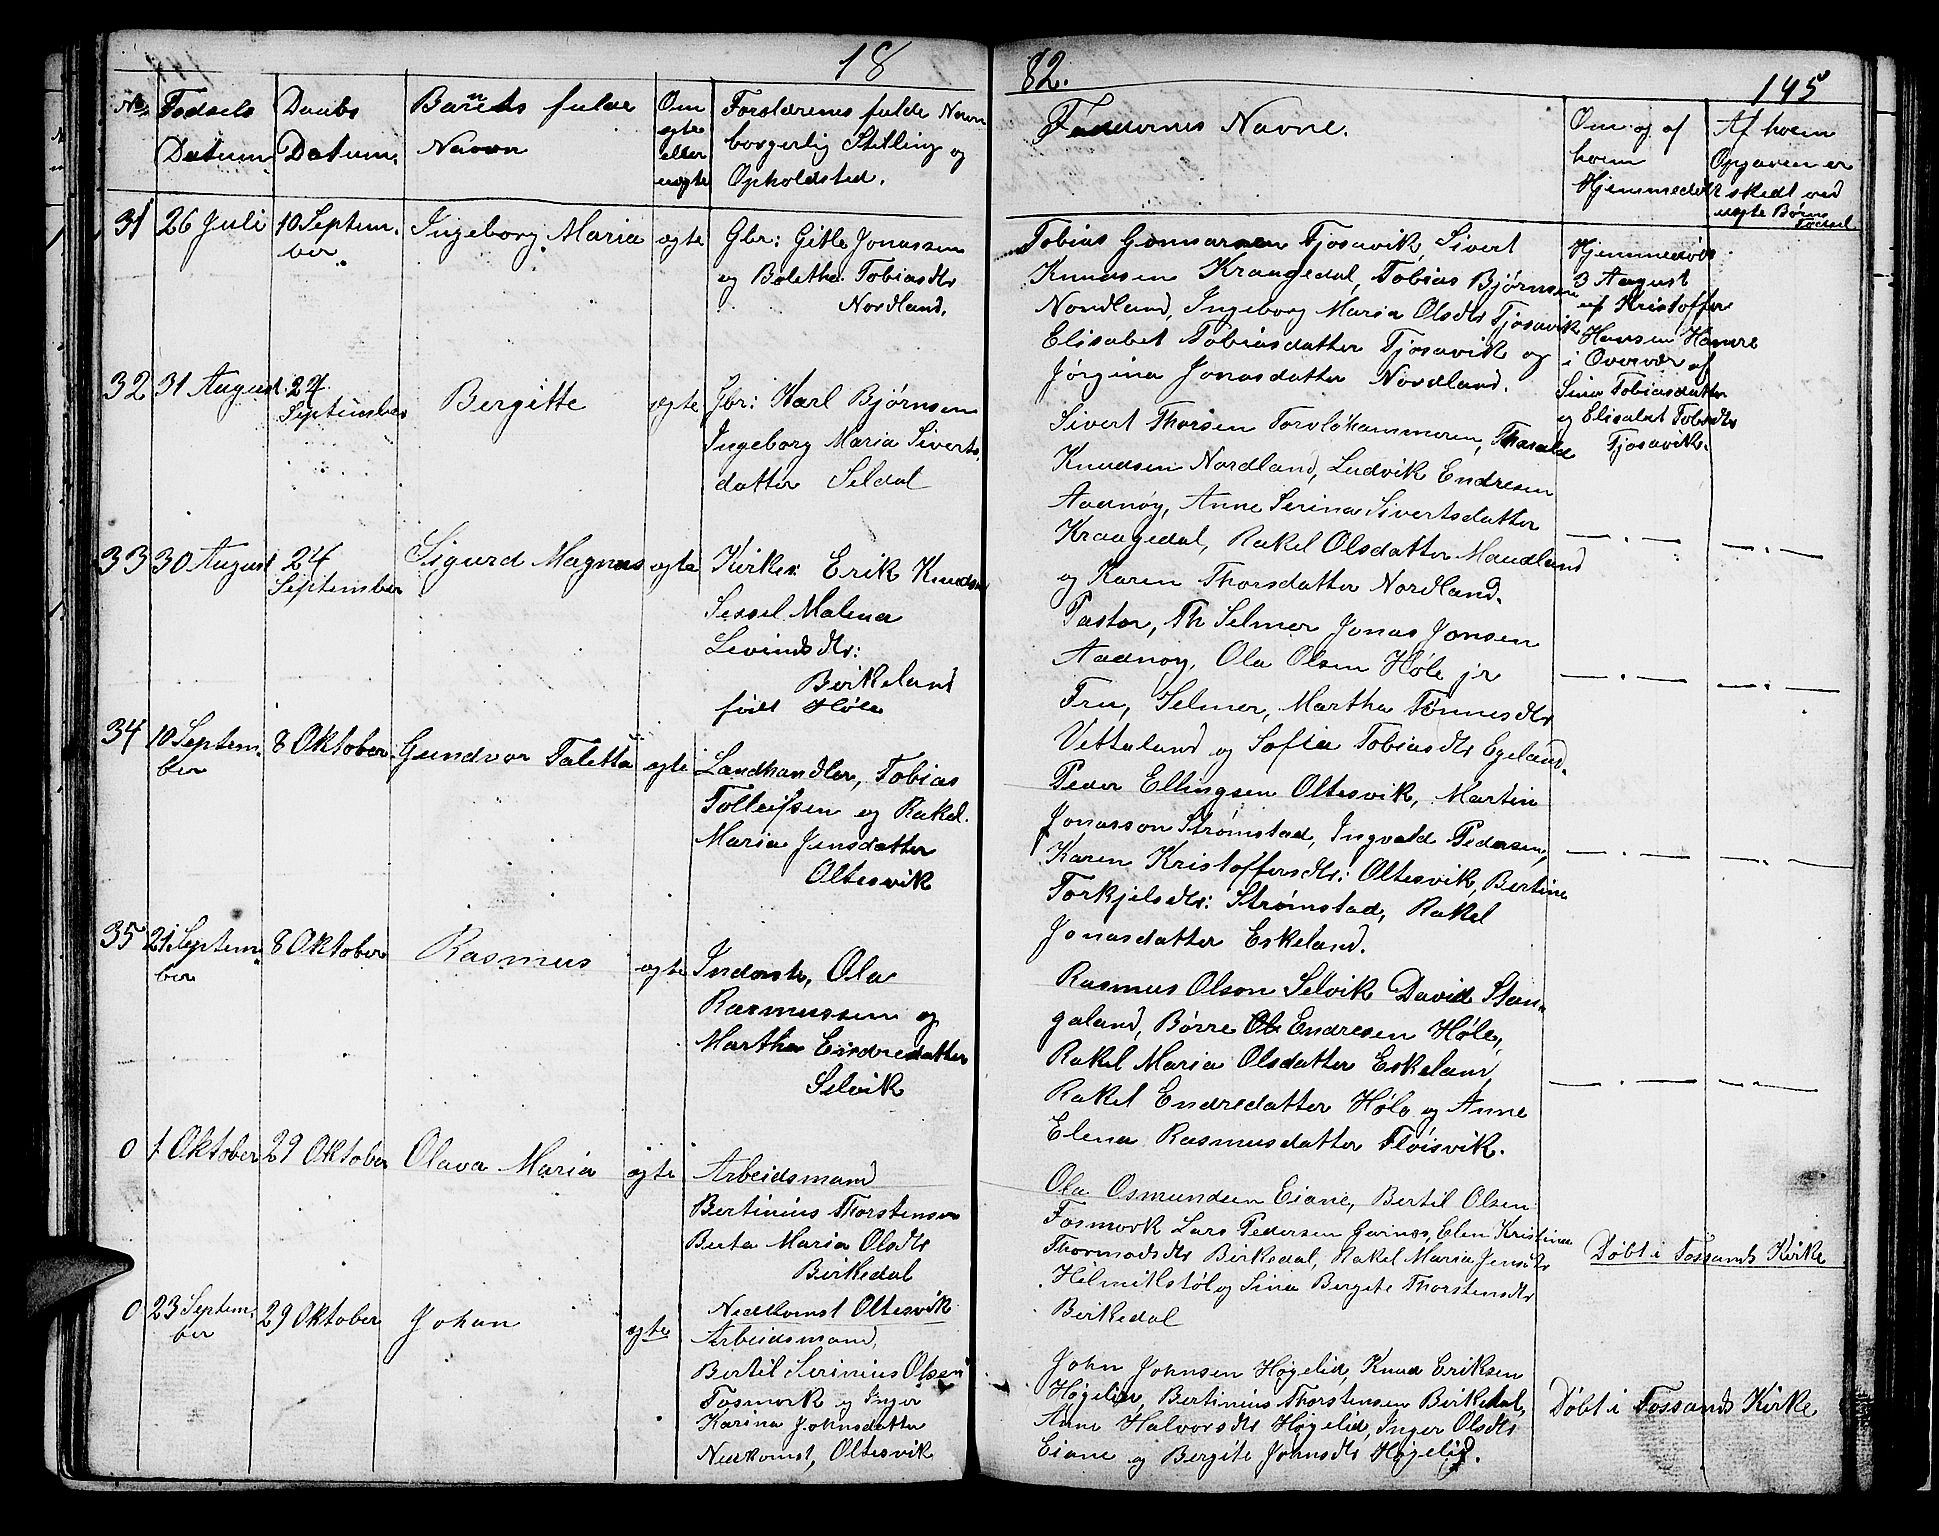 18
82.
145
No.
Fødsels
Datum
Daabs
Datum.
Barnets fulde
Navn
Om
egte
eller
uegte
Forældrenes fulde Navn
borgerlig Stilling og
Opholdsted.
Faddernes Navne.
Om og af
hvem
Hjemmedøbt
Af hvem
Opgaven er
skedt ved
uegte Børns
Fødsel
31
26 Juli
10 Septem-
ber.
Ingeborg Maria
egte
Gbr: Gitle Jonassen
og Bolethe Tobiasdtr
Nordland.
Tobias Gunnarsen Tjosavik, Sivert
Knudsen Kraagedal, Tobias Bjørnsen
Nordland, Ingeborg Maria Olsdtr Tjosavik
Elisabet Tobiasdatter Tjosavik og
Jørgina Jonasdatter Nordland.
Hjemmedøbt
3 August
af Kristoffer
Hansen Hamre
i Overvær af
Sina Tobiasdatter
og Elisabet Tobsdtr
Tjosavik.
32
31 August
24
September
Bergitte
egte
Gbr: Karl Bjørnsen
Ingeborg Maria Siverts
datter Seldal
Sivert Thorsen Torsløkammeren, Tharald
Knudsen Nordland, Ludvik Endresen
Aadnøy, Anne Serina Sivertsdatter
Kraagedal, Rakel Olsdatter Maudland
og Karen Thorsdatter Nordland.
— . —
— . —
33
30 August
24
September
Sigurd Magnus
egte
Kirkes: Erik Knudsen
Sessel Malena
Levindsdtr:
Birkeland
født Høle
Pastor, Th Selmer Jonas Jonsen
Aadnøy, Ola Olsen Høle jr
Fru, Selmer, Martha Tønnesdtr
Vettaland og Sofia Tobiasdtr Egeland.
— . —
— . —
34
10 Septem-
ber
8 Oktober
Gundvor Taletta
egte
Landhandler, Tobias
Tolleifsen og Rakel
Maria Jensdatter
Oltesvik
Peder Ellingsen Oltesvik, Martin
Jonasson Strømstad, Ingvald Pedersen,
Karen Kristoffersdtr: Oltesvik, Bertine
Torkjelsdtr: Strømstad, Rakel
Jonasdatter Eskeland.
— . —
— . —
35
21 Septem-
ber
8 Oktober
Rasmus
egte
Inderste, Ola
Rasmussen og
Martha Endredatter
Selvik
Rasmus Olson Selvik David Stan-
galand, Børre Endresen Høle,
Rakel Maria Olsdatter Eskeland
Rakel Endredatter Høle og Anne
Elena Rasmusdatter Fløisvik.
— . —
— . —
0
1 Oktober
29 Oktober
Olava Maria
egte
Arbeidsmand
Bertinius Thorstensen
Berta Maria Olsdtr
Birkedal
Ola Osmundsen Eiane, Bertil Olsen
Fosmork Lars Pedersen Gavnes, Elen Kristine
Thormodsdtr Birkedal, Rakel Maria Jensdtr
Helmikstøl og Sina Bergite Thorstensdtr
Birkedal
Døbt i Fossands Kirke
0
23 Septem-
ber
29 Oktober
Johan
egte
Nedkomst Oltesvik
Arbeidsmand,
Bertil Serinius Olsen
Fosmork og Inger
Karina Johnsdatter
Nedkomst, Oltesvik
John Johnsen Høgelid, Knud Eriksen
Høgelid, Bertinius Thorstensen Birkedal,
Anne Halvorsdtr Høgelid, Inger Olsdtr
Eiane og Bergite Johnsdtr Høgelid.
Døbt i Fossands Kirke